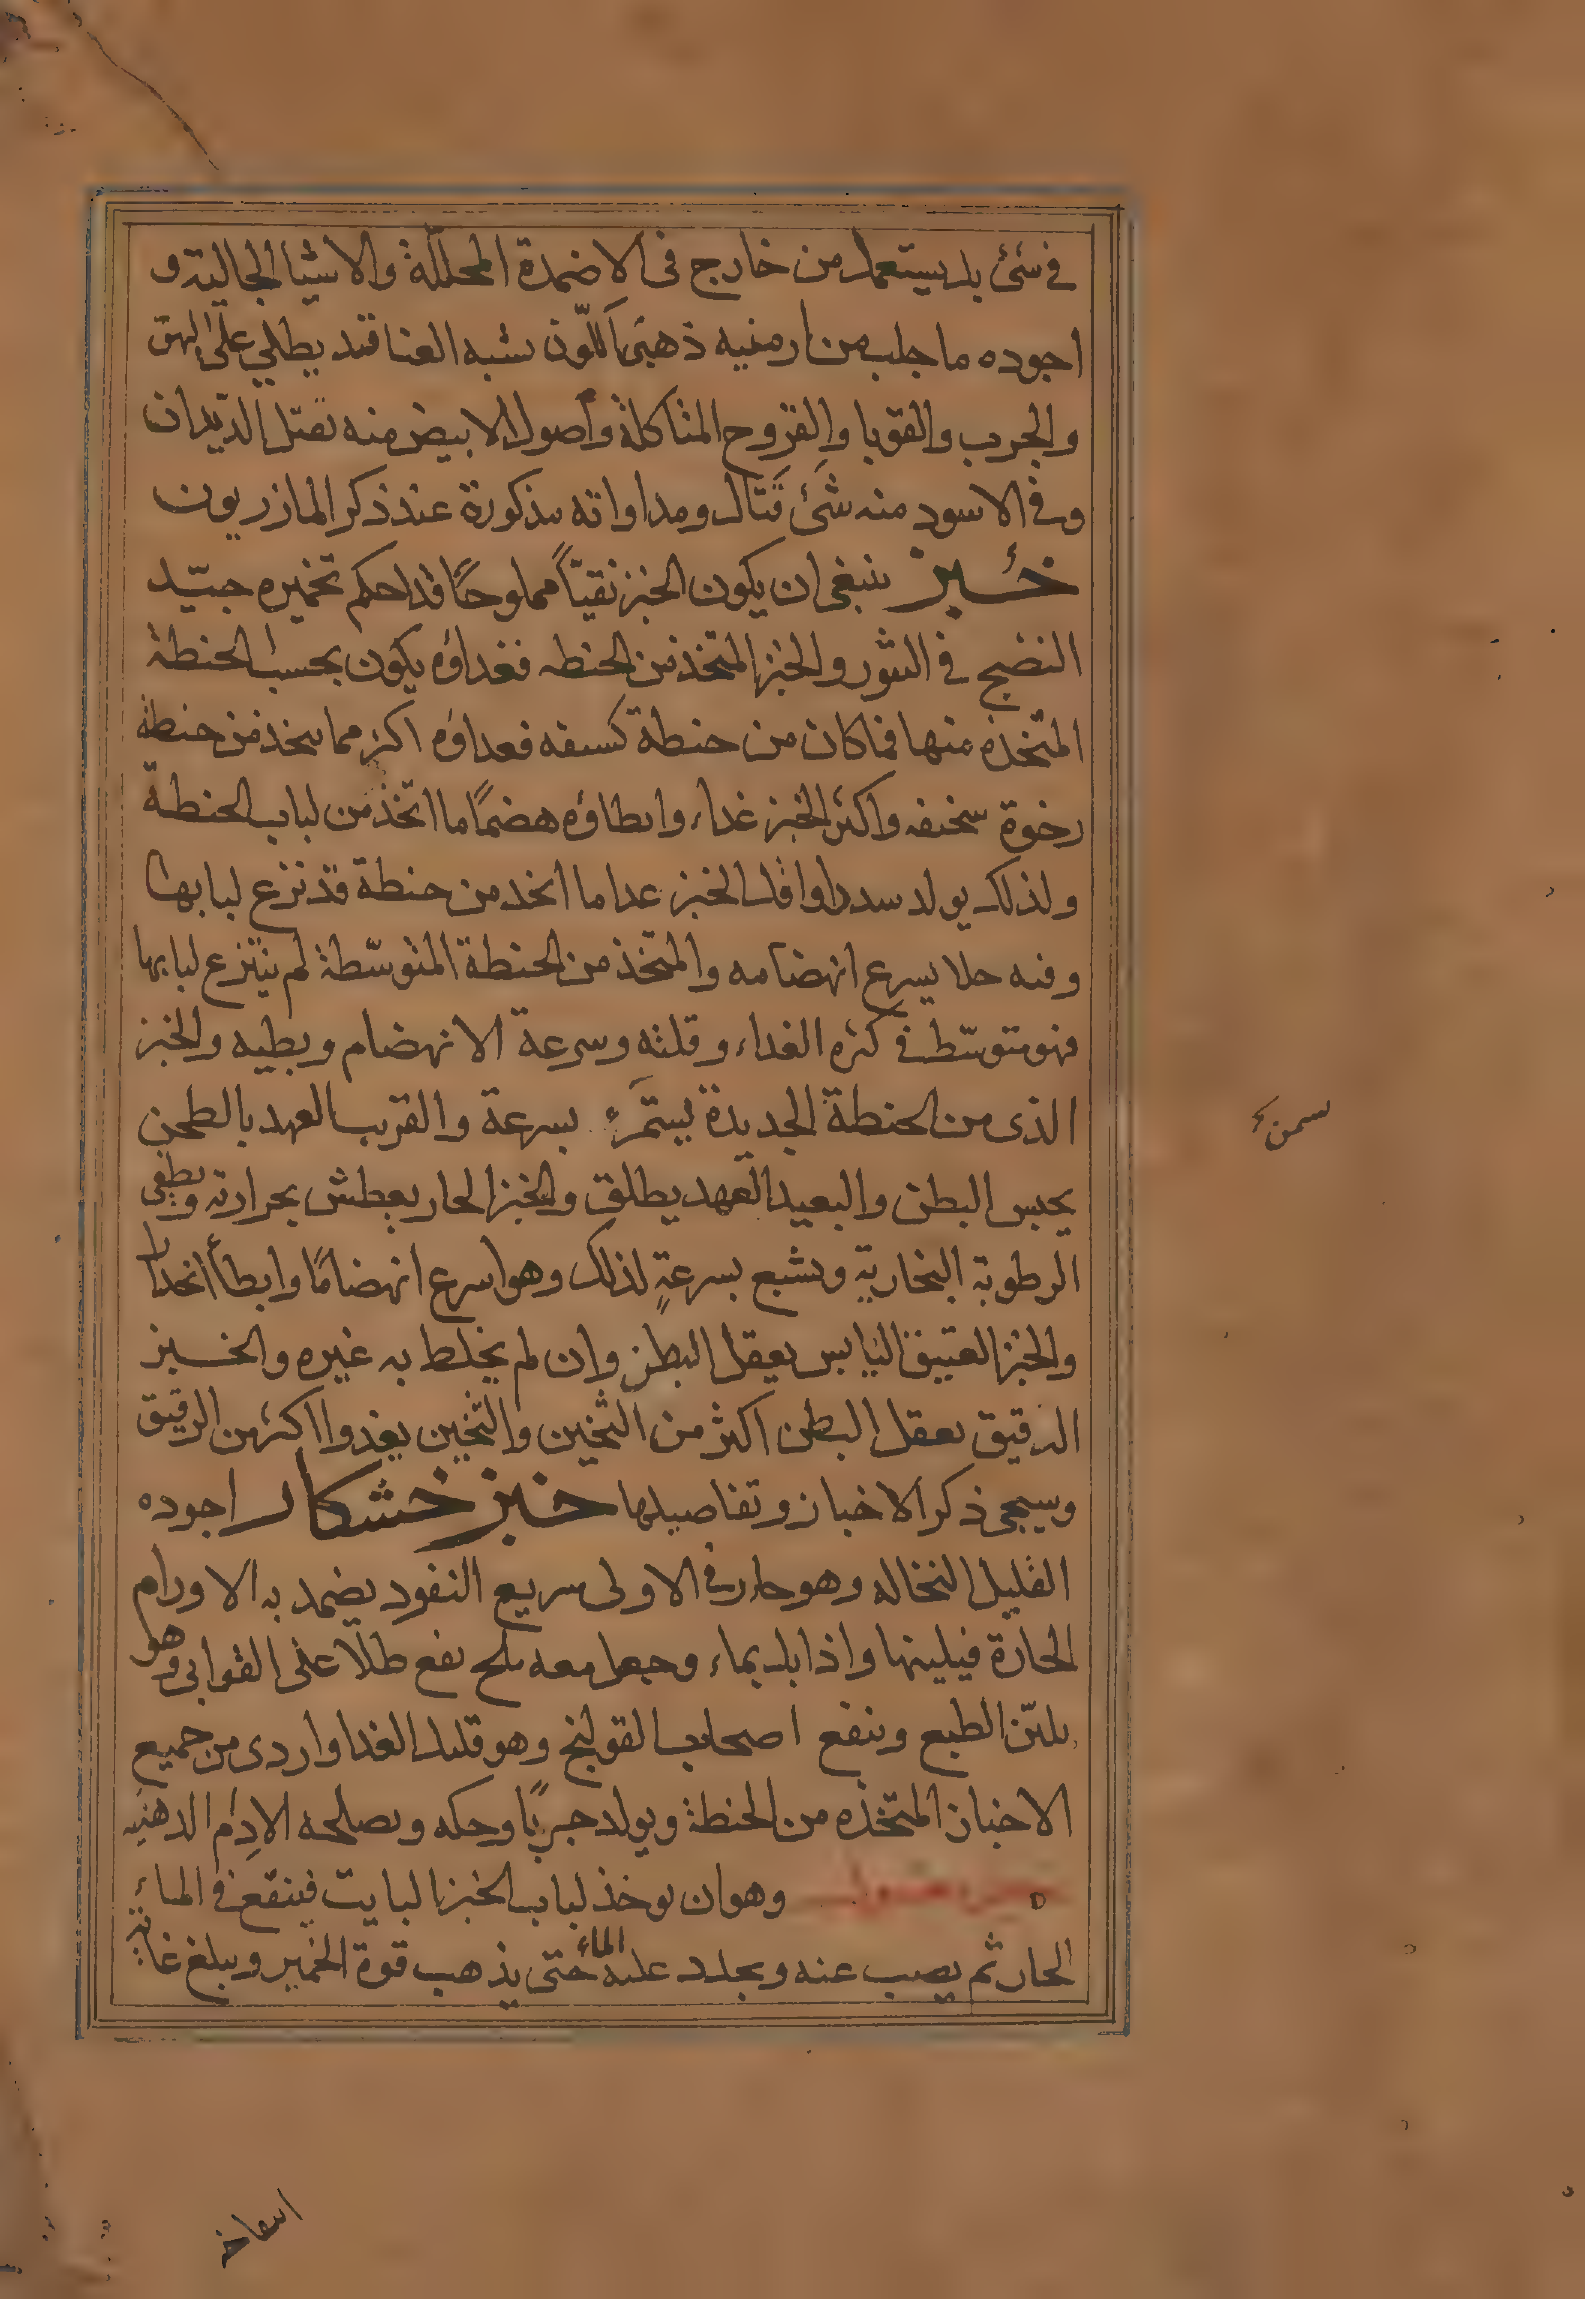 في شئ بل يستعمل من خارج في الاضمدة المحللة والاشيا الجالية و
اجوده ما جلب من ارمنيه ذهبى اللون يطلي على البهق
والجرب والقوبا والقروح المتاكلة وأصول الابيض منه تقتل الديدان
وفي الاسود منه شئ قتال ومداواته مذكورة عند ذكر المازريون
خبز ينبغي ان يكون الخبز نقيًا مملوحًا قد احكم تخميره جيّد
النضج في التنور والخبز المتخذ من الحنطه فغداؤه يكون بحسب الحنطة
المتّخذه منها فما كان من حنطة كسفه فعداؤه اكثر مما يتخذ من حنطة
رخوة سخيفه واكثر الخبز غداء وابطاؤه هضمًا ما اتخذ من لباب الحنطة
ولذلك يولد سددا واقل الخبز عدا ما اتخد من حنطة قد نزع لبابها
وفيه جلا يسرع انهضامه والمتخذ من الحنطة المتوسّطة لم ينتزع لبابها
فهو متوسّط في كثره الغداء وقلته وسرعة الانهضام وبطيه والخبز
الذى من الحنطة الجديدة يستمرَء بسرعة والقريب العهد بالطحن
يحبس البطن والبعيد العهد يطلق والخبز الحار يعطش بحرارته ويطفى
الرطوبة البخارية ويشبع بسرعةٍ لذلك وهو اسرع انهضامًا وابطأ انحدارا
والخبز العتيق اليابس يعقل البطن وان لم يخلط به غيره والخبز
الدقيق يعقل البطن اكثر من الثخين والثخين يغدوا اكثر من الرقيق
وسيجى ذكر الاخباز وتفاصيلها خبز خشكار اجوده
القليل النخاله وهو حار في الاولى سريع النفود يضمد به الاورام
الحارة فيلينها واذا بل بماء وجعل معه ملح نفع طلاً على القوابى وهو
يليّن الطبع وينفع اصحاب القولنج وهو قليل الغدا واردى من جميع
الاخباز المتخذه من الحنطة ويولد جربًا وحكه ويصلحه الادم الدهنيه
وهو ان يوخذ لباب الخبز البايت فينقع في الماء
الحار ثم يصب عنه ويجدد عليه الماء حتى يذهب قوة الخمير ويبلغ غايته